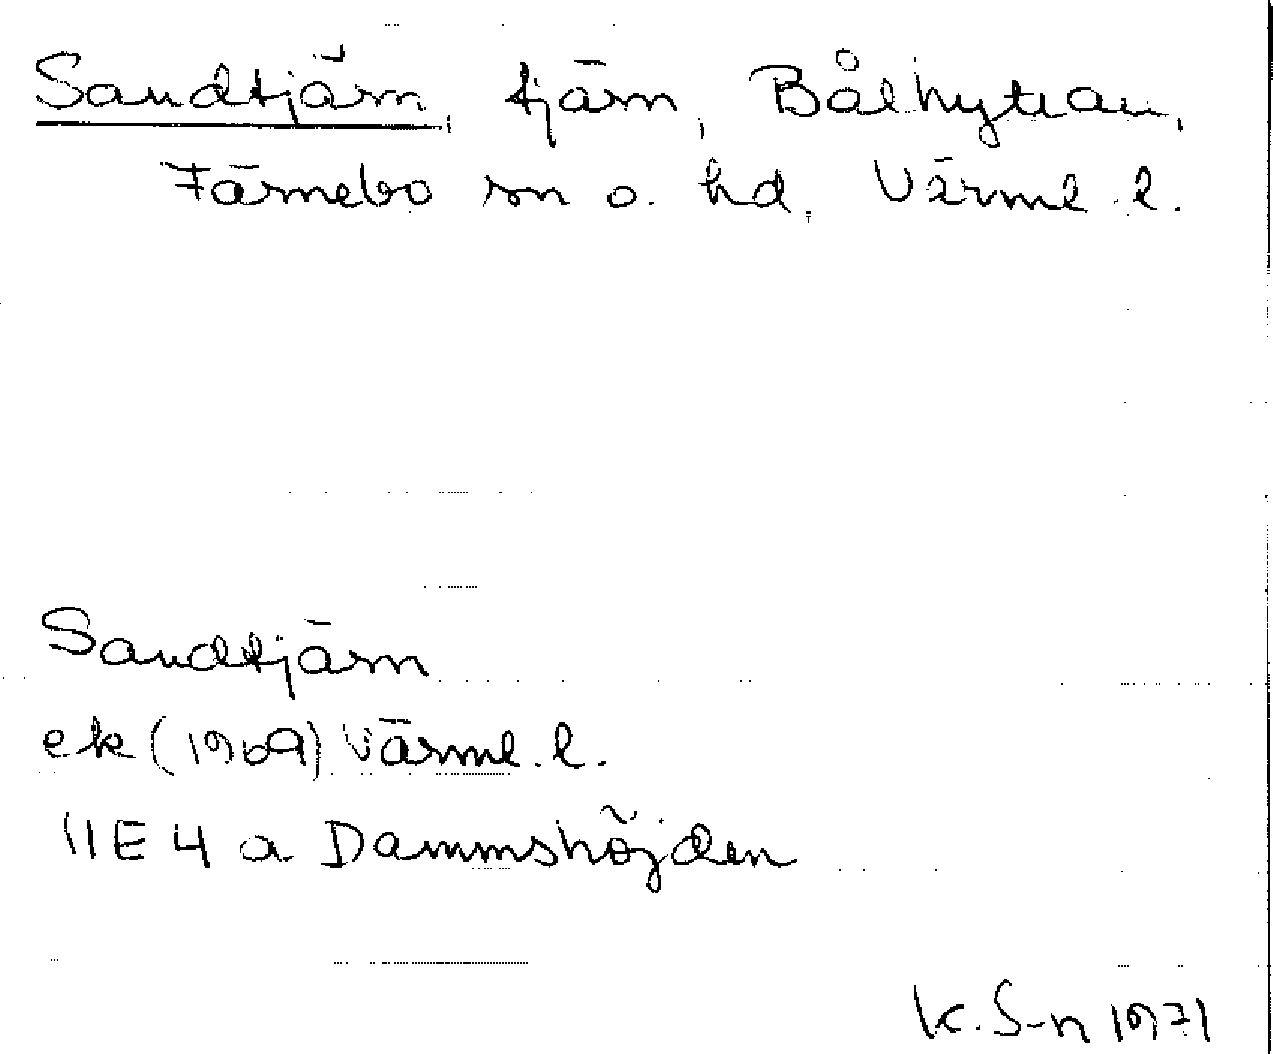 Sandtjärn, tjärn, Bålhyttan,
Färnebo sn o. hd. Värml. l.
Sandtjärn
ek (1969) Värml. l.
11E 4 a Dammshöjden
K. S-n 1971